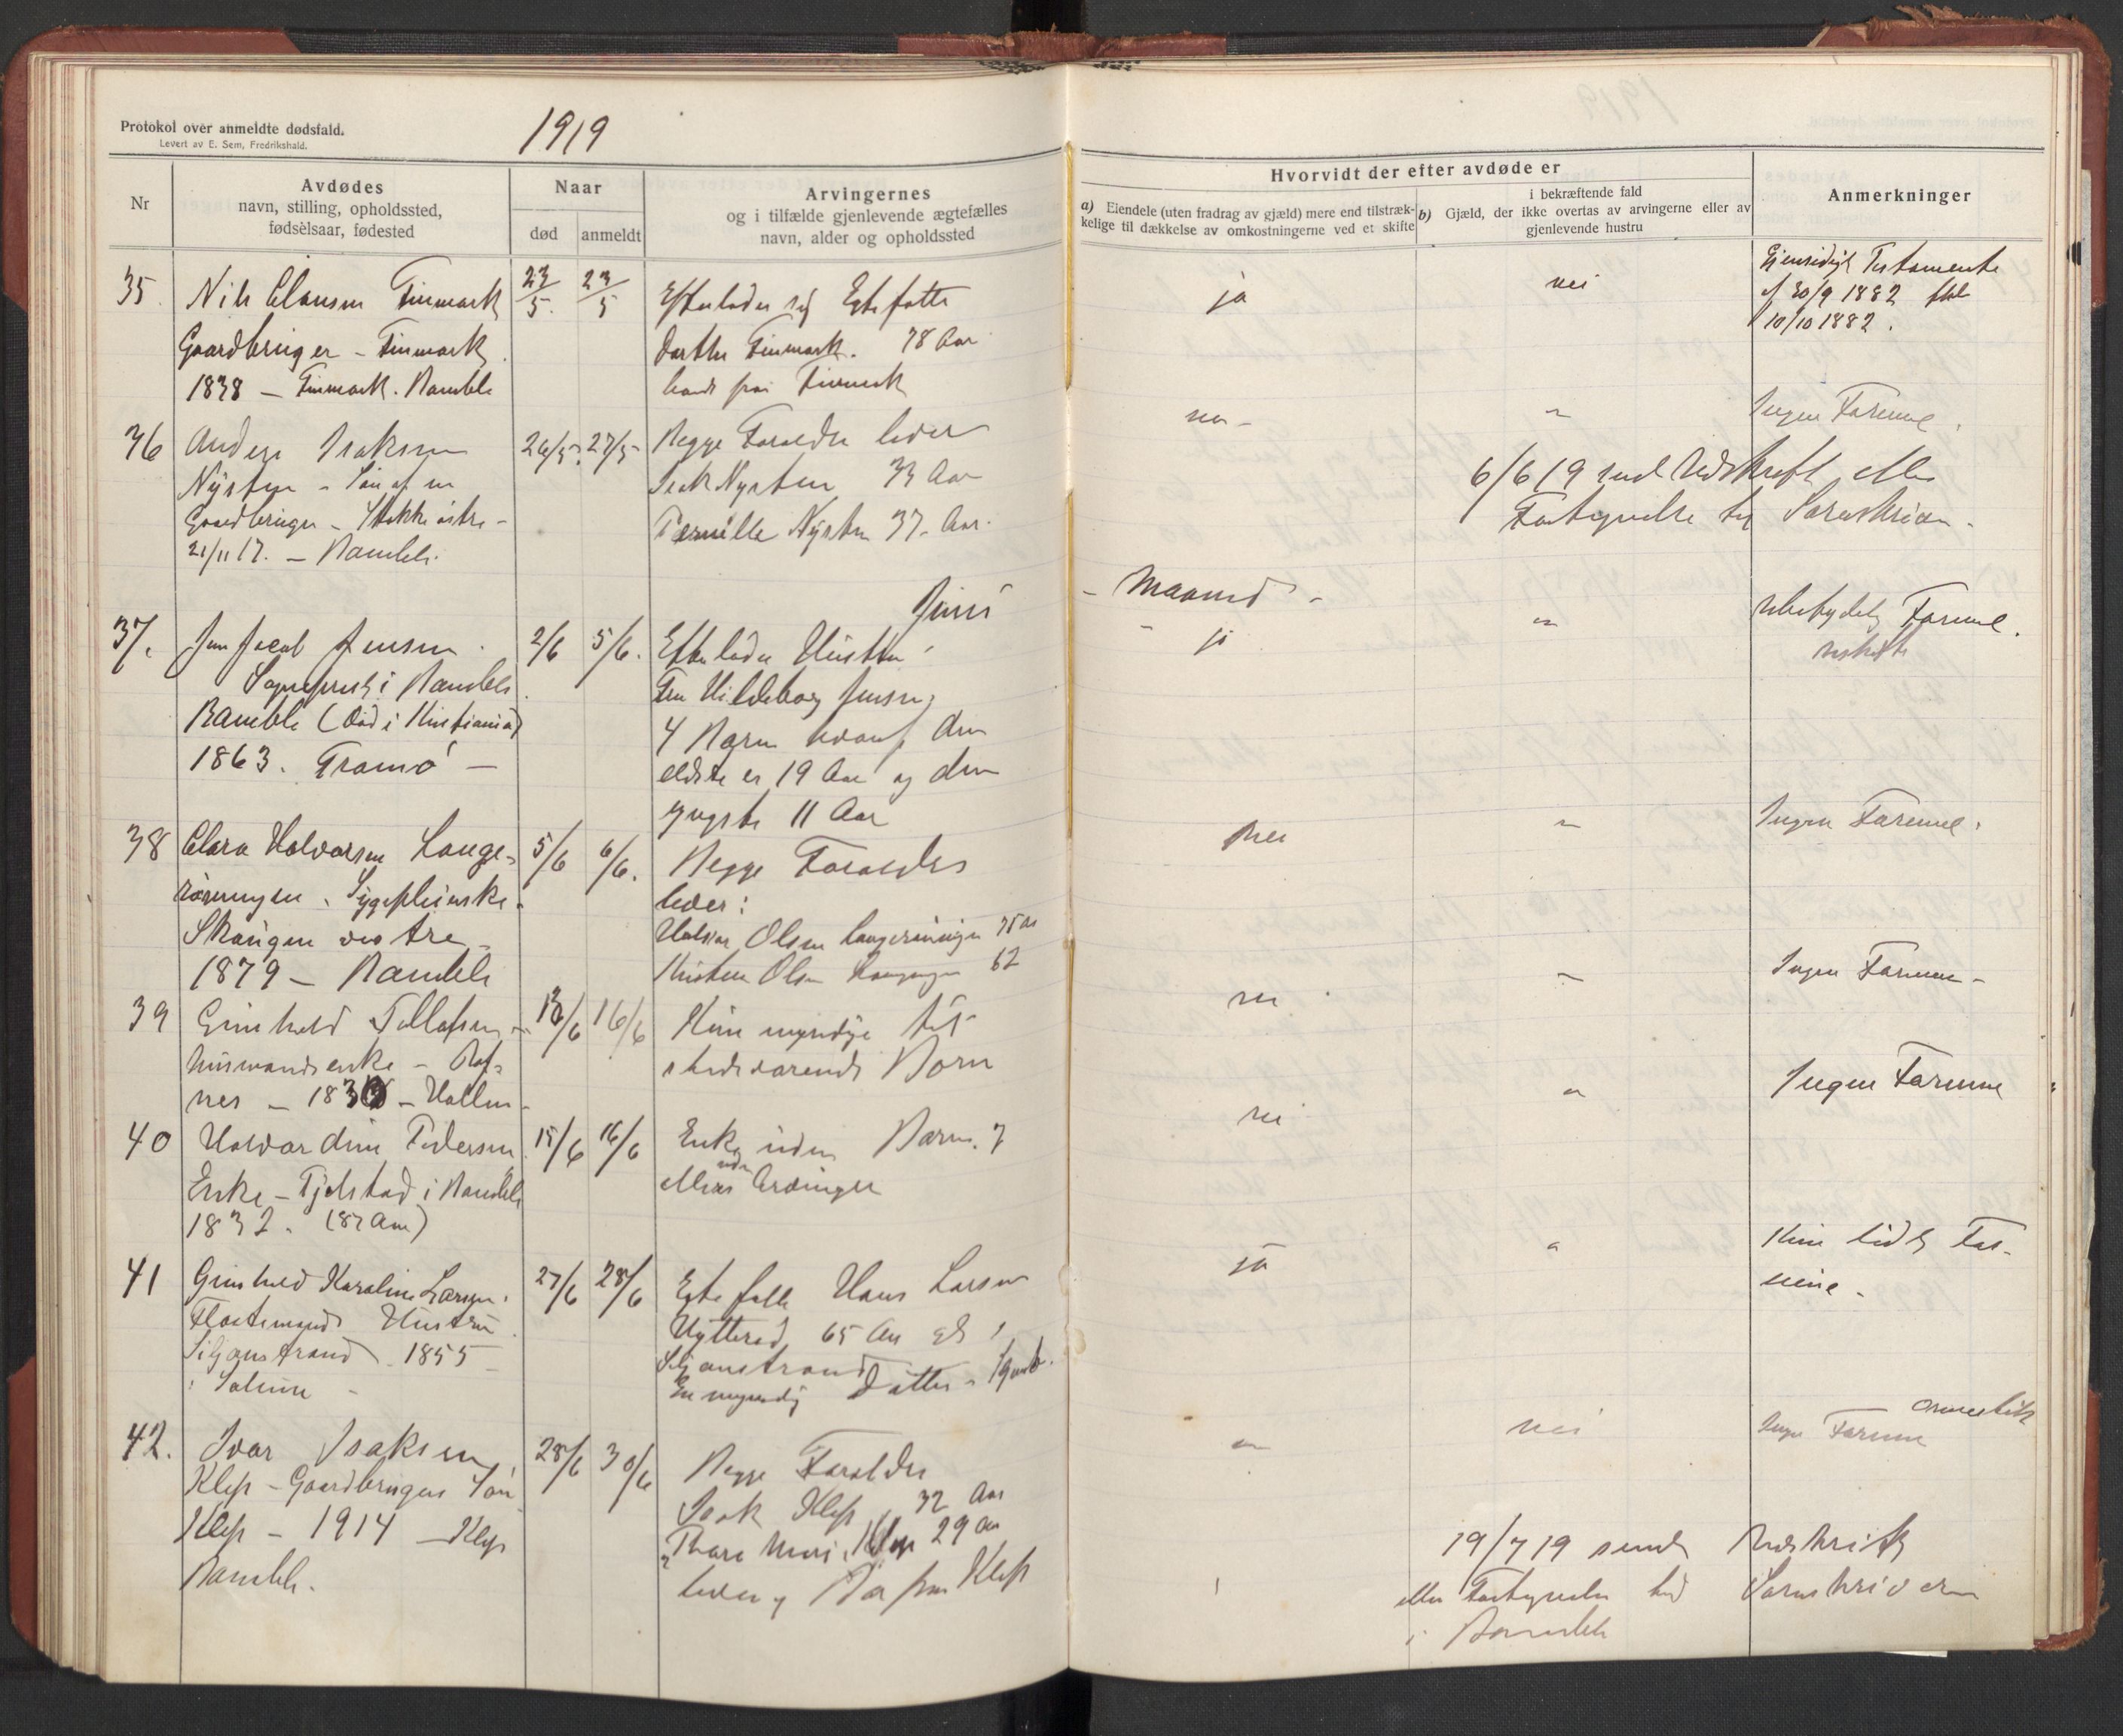 Protokol over anmeldte dødsfald.
Levert av E. Sem, Fredrikshald.
1919
Nr
Avdødes
navn, stilling, opholdssted,
fødselsaar, fødested
Naar
død
anmeldt
Arvingernes
og i tilfælde gjenlevende ægtefælles
navn, alder og opholdssted
35.
Nils Clausen Finmark
Gaardbruger - Finmark
1838 - Finmark. Bamble
23/5.
23/5
Efterlader sig Egtefælle
Dorthe Finmark. 78 Aar
Finmark
36
Anders Isaksen
Nysten - Søn af en
Gaardbruger - Stokke østre -
21/11 17. - Bamble.
26/5.
27/5
Begge Forældre lever
Isak Nysten 33 Aar
Pernille Nysten 37 Aar.
Juni
37.
Jens Jacob Jensen
Sogneprest i Bamble
Bamble (Død i Kristiania)
1863. Tromsø -
2/6
5/6.
Efterlader Hustru
Fru Hildeborg Jensen
4 Børn hvoraf den
eldste er 19 Aar og den
yngste 11 Aar
38
Clara Halvorsen Lange-
rønningen. Sygepleierske.
Skougen vestre -
1879 - Bamble
5/6
6/6.
Begge Forældre
lever:
Halvor Olsen Langerønningen 75 Aar
Kirsten Olsen 62
39
Gunhild Tollefsen -
Husmandsenke - Raf-
nes - 183 - Hollen -
13/6
16/6
Kun myndige til-
stedeværende Børn
40
Halvardine Pedersen
Enke - Fjelstad i Bamble
1832. (87 Aar)
15/6
16/6
Enke uden Barn.
uden
Arvinger
41
Gunhild Karoline Larsen.
Flootemands Hustru
Siljanstrand 1855 -
i Solum -
27/6
28/6
Egtefælle Hans Larsen
65 Aar
Siljanstrand
En myndig Datter -
42.
Ivar Isaksen
Klep - Gaardbrugers Søn
Klep - 1914 - Klep
Bamble.
28/6
30/6
Begge Forældre
Isak Klep 32 Aar
Klep 29 Aar
lever og Bor paa Klep
Hvorvidt der efter avdøde er
a) Eiendele (uten fradrag av gjæld) mere end tilstræk-
kelige til dækkelse av omkostningerne ved et skifte
i bekræftende fald
b) Gjæld, der ikke overtas av arvingerne eller av
gjenlevende hustru
Anmerkninger
ja
nei
Gjensidigt Testamente
af 30/9 1882
10/10 1882.
nei -
"
Ingen Formue.
6/6 19 send Udskrift eller
Fortegnelse til Sorenskriveren.
- Maaned -
- ja
"
Ubetydelig Formue.
nei
"
Ingen Formue.
nei
"
Ingen Formue -
nei
"
Ingen Formue
ja
"
Kun lidt For-
mue -
"
nei
Ingen Formue
19/7 19 sendt Udskrift
eller Fortegnelse til Sorenskriveren
i Bamble